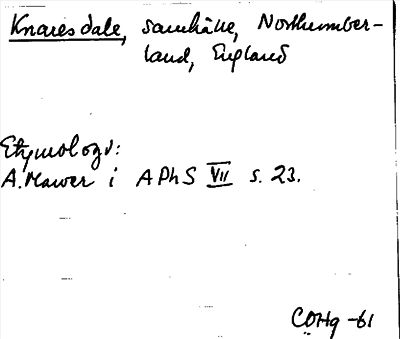 Knaresdale, samhälle, Northumber-
land, England
Etymologi:
A. Mawer i APhS VII s. 23.
CÖHg -61